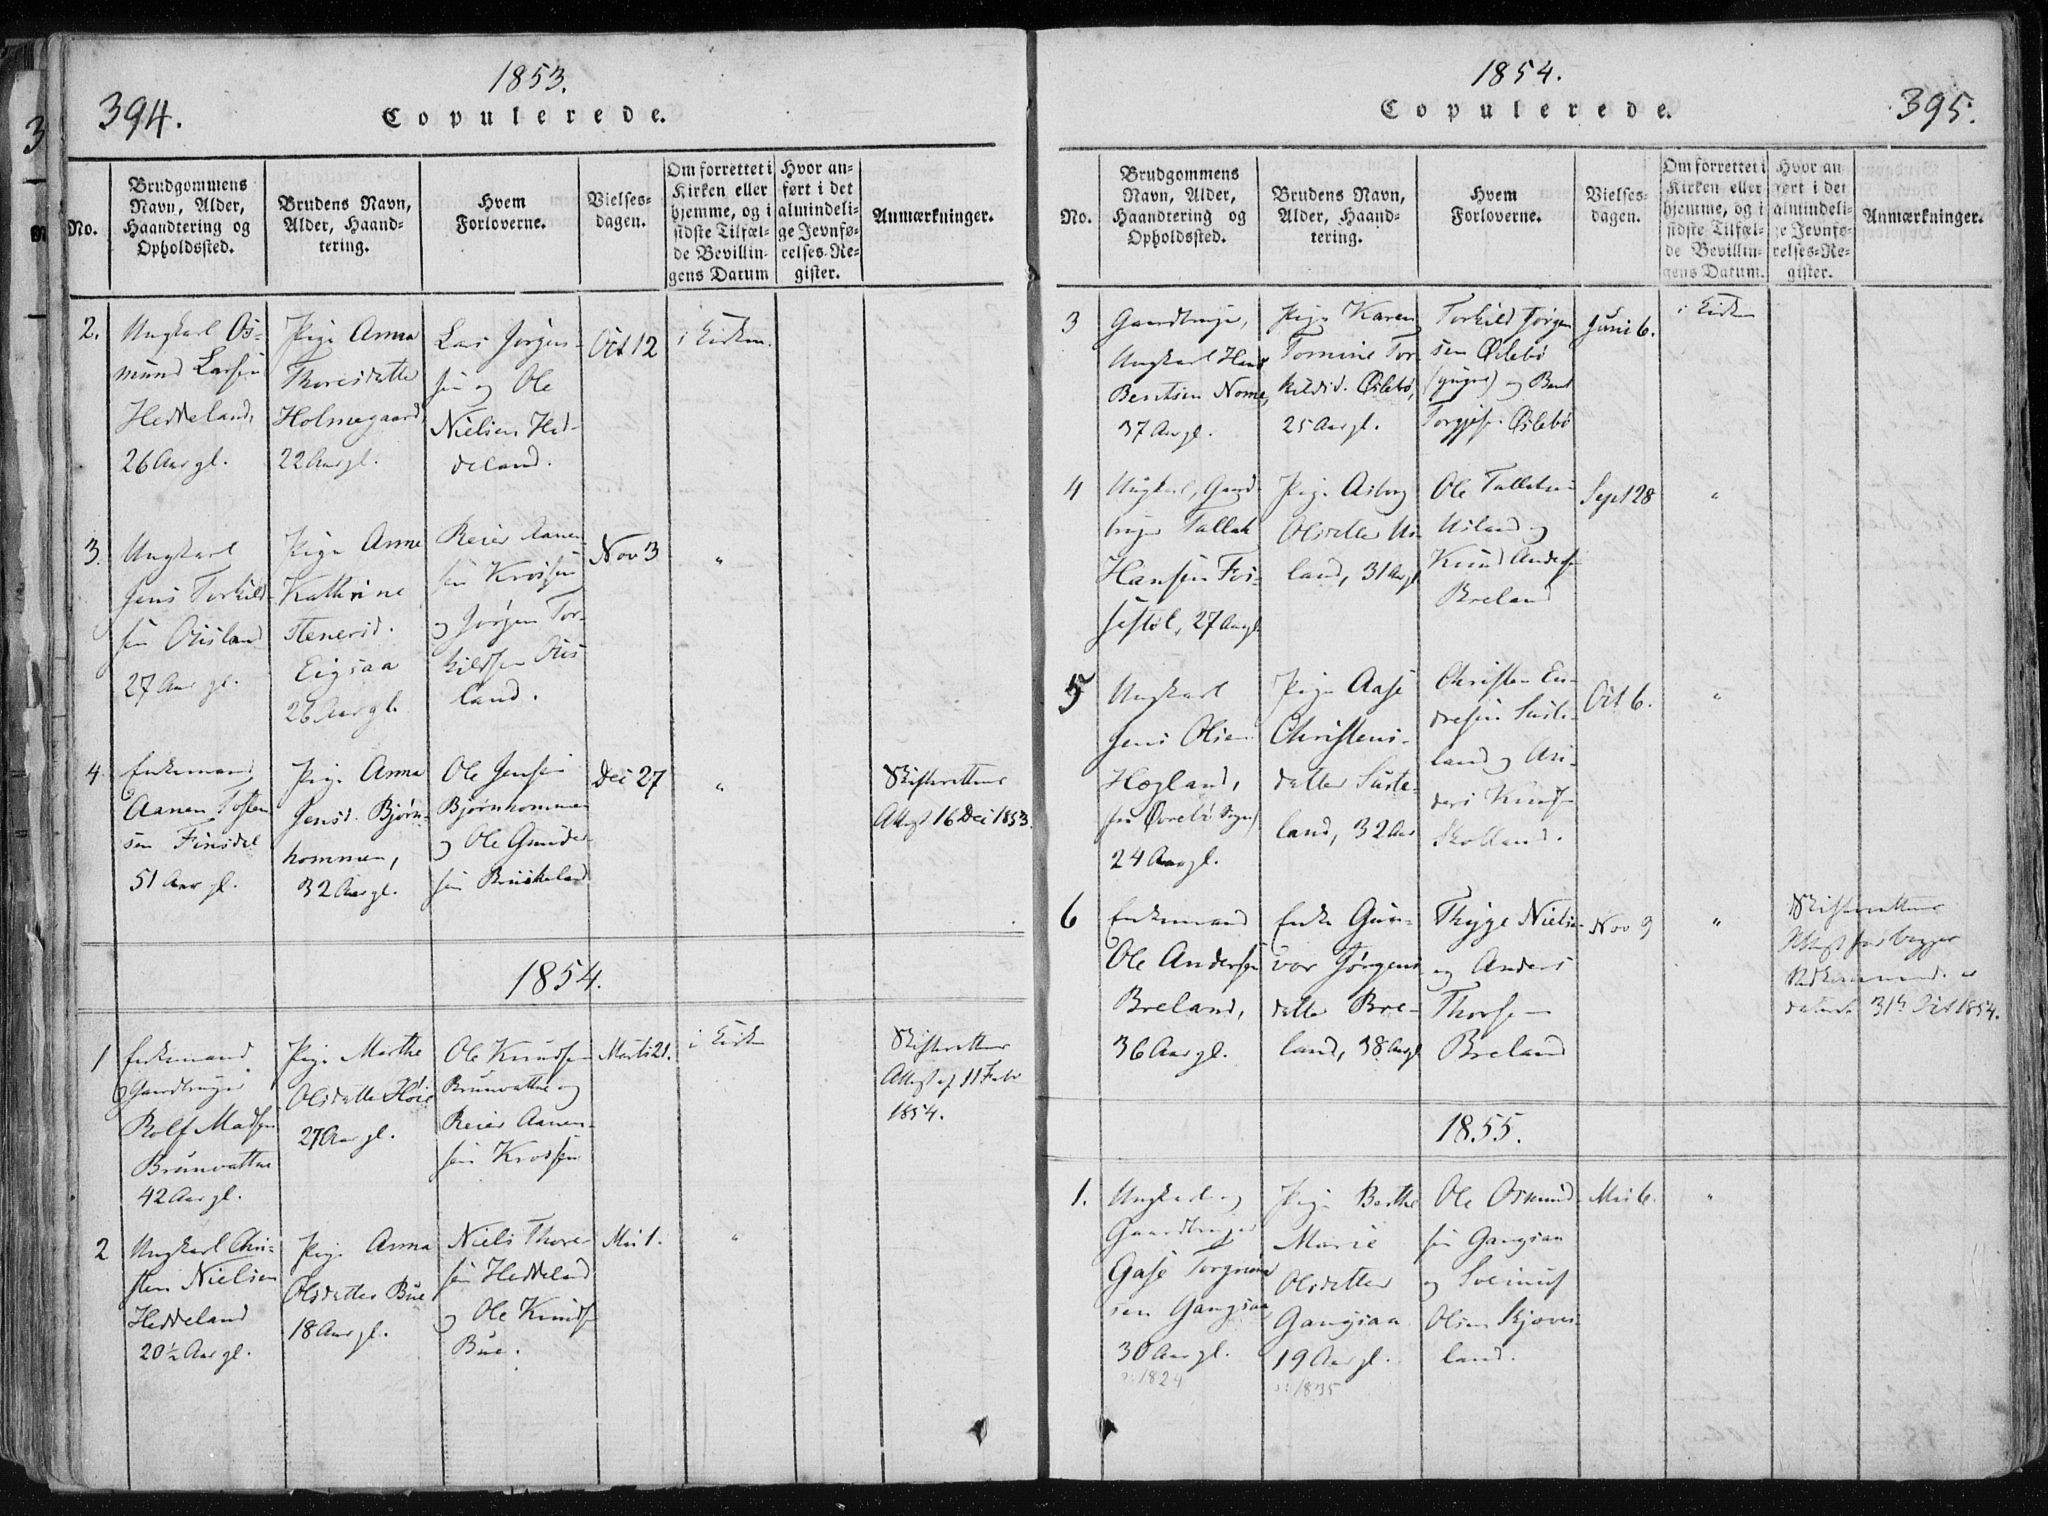 394.
1853.
Copulerede.
No.
Brudgommens
Navn, Alder,
Haandtering og
Opholdssted.
Brudens Navn,
Alder, Haand-
tering.
Hvem
Forloverne.
Vielses-
dagen.
Om forrettet i
Kirken eller
hjemme, og i
sidste Tilfæl-
de Bevillin-
gens Datum
Hvor an-
ført i det
almindeli-
ge Jevnfø-
relses-Re-
gister.
Anmærkninger.
2.
Ungkarl Os-
mund Larsen
Heddeland,
26 Aar gl.
Pige Anna
Thoresdatter
Holmegaard,
22 Aar gl.
Lars Jørgen-
sen og Ole
Nielsen Hed-
deland.
Oct 12
i Kirken.
3.
Ungkarl
Jens Torkild-
sen Osisland
27 Aar gl.
Pige Anne
Kathrine
Stenersd.
Eigsaa
26 Aar gl.
Reier Aanen-
sen Krossen
og Jørgen Tor-
kildsen
land.
Nov 3
"
4.
Enkemand
Aanen Tosten
sen Finsdal
51 Aar gl.
Pige Anna
Jensd. Bjørn-
kommen,
32 Aar gl.
Ole Jensen
Bjørnkommen
og Ole Gunder-
sen
Dec 27
"
Skifterettens
Attest 16 Dec 1853.
1854.
1
Enkemand
Gaardbruger
Rolf Madsen
Brunvatne
42 Aar gl.
Pige Marthe
Olsdatter Høie
27 Aar gl.
Ole Knudsen
Brunvatne og
Reier Aanen-
sen Krossen
Marts 21.
i Kirken
Skifterettens
Attest af 11 Febr
1854.
2
Ungkarl Chri-
sten Nielsen
Heddeland
20½ Aar gl.
Pige Anna
Olsdatter Bue
18 Aar gl.
Niels Thore-
sen Heddeland
og Ole Knudsen
Bue.
Mai 1.
"
1854.
Copulerede.
395.
No.
Brudgommens
Navn, Alder,
Haandtering og
Opholdssted.
Brudens Navn,
Alder, Haand-
tering.
Hvem
Forloverne.
Vielses-
dagen.
Om forrettet i
Kirken eller
hjemme, og i
sidste Tilfæl-
de Bevillin-
gens Datum.
Hvor an
ført i det
almindeli-
ge Jevnfø-
relses-Re-
gister.
Anmærkninger.
3
Gaardbruger,
Ungkarl Hans
Bentsen Nome,
37 Aar gl.
Pige Karen
Tomine Tor-
kildsd. Øslebø,
25 Aar gl.
Torkild Jørgen
sen Øslebø
(yngre) og Bent
Torgjus. Øslebø
Juni 6.
i Kirken
4
Ungkarl, Gaard-
bruger Tallak
Hansen Fos-
sestøl, 27 Aar gl.
Pige Asborg
Olsdatter Us-
land, 31 Aar gl
Ole Tallaksen
Usland og
Knud Anders.
Breland
Sept 28
"
5
Ungkarl
Jens Olsen
Høgland,
fra Øvrebø Sogn
24 Aar gl.
Pige Aase
Christens-
datter Suste-
land, 32 Aar
Christen En-
dresen Suste-
land og
Knuds.
Oct 6.
"
6
Enkemand
Ole Andersen
Breland,
36 Aar gl.
Enke Gun-
vor Jørgens
datter Bre-
land, 38 Aar gl
Thyge Nielsen
og Anders
Thorsen
Breland
Nov 9
"
Skifterettens
Attest for begges
Vedkommende er
dateret 31te Oct 1854.
1855.
1.
Ungkarl og
Gaardbruger
Gase Torgrim
sen Gangsaa,
30 Aar gl.
1824
Pige Berthe
Marie
Olsdatter
Gangsaa
19 Aar gl.
1835
Ole Osmund
sen Gangsaa
og
Olsen Skjeves-
land.
Mai 6.
"